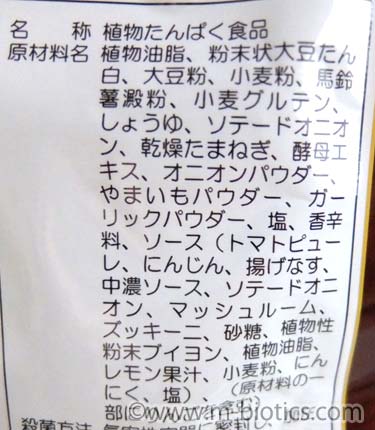 名　称　植物たんぱく食品
原材料名　植物油脂、粉末状大豆たん
白、大豆粉、小麦粉、馬鈴
薯澱粉、小麦グルテン、
しょうゆ、ソテードオニオ
ン、乾燥たまねぎ、酵母エ
キス、オニオンパウダー、
やまいもパウダー、ガー
リックパウダー、塩、香辛
料、ソース（トマトピュー
レ、にんじん、揚げなす、
中濃ソース、ソテードオニ
オン、マッシュルーム、
ズッキーニ、砂糖、植物性
粉末ブイヨン、植物油脂、
レモン果汁、小麦粉、にん
にく、塩）　（原材料の一
部に
殺菌方法　気密性容器に密封し、
www.m-biotics.com